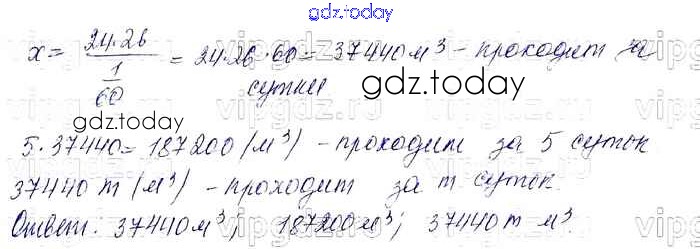 gdz.today
x = 24·26 / 1/60 = 24·26·60 = 37440 м³ - проходит за
сутки
gdz.today
gdz.today
5·37440 = 187200 (м³) - проходит за 5 суток
37440 m (м³) - проходит за m суток.
Ответ: 37440 м³; 187200 м³; 37440 m м³.